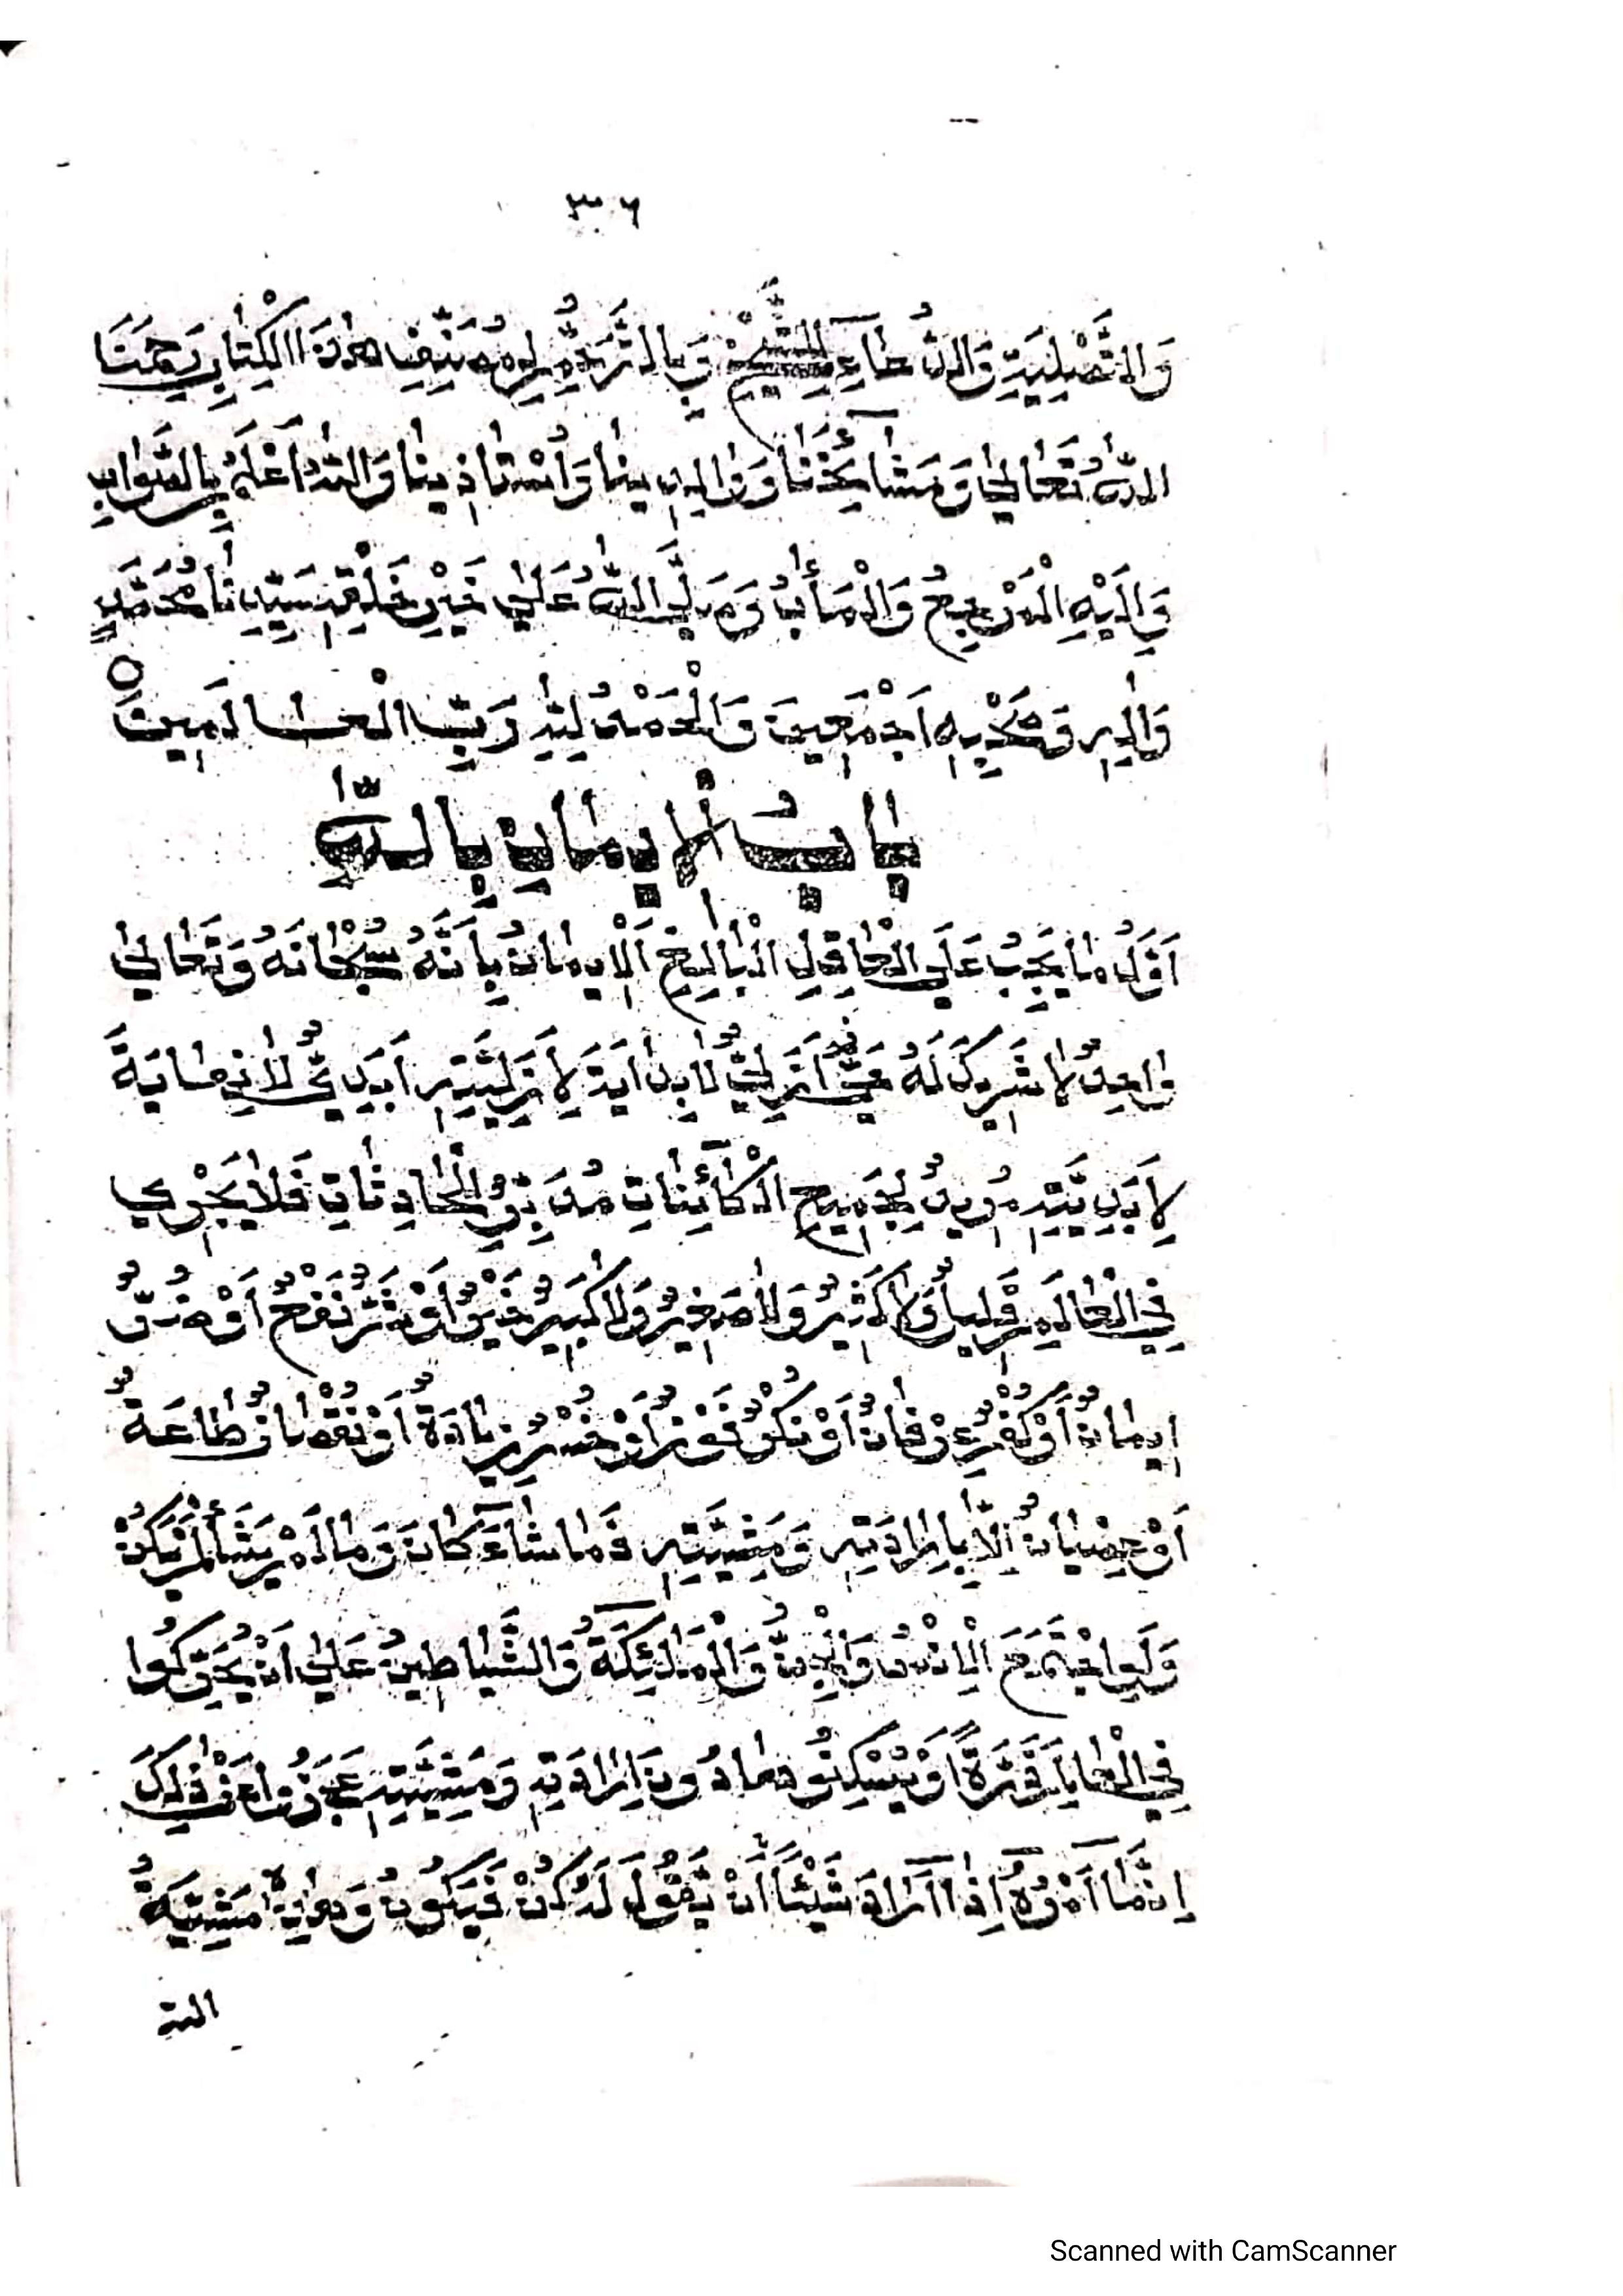 ٣٠٦
وَالتَّصْلِيَةِ وَالدُّعَاءِ الشَّيْخِ وَبِالتَّرَحُّمِ لِمُصَنِّفِ هٰذَا الْكِتَابِ رَحِمَنَا
اللّٰهُ تَعَالىٰ وَمَشَآئِخَنَا وَوَالِدِينَا وَأُسْتَاذِينَا وَاللّٰهُ أَعْلَمُ بِالصَّوَابِ
وَإِلَيْهِ الْمَرْجِعُ وَالْمَأٰبُ وَصَلَّى اللّٰهُ عَلىٰ خَيْرِ خَلْقِهِ سَيِّدِنَا مُحَمَّدٍ
وَاٰلِهٖ وَصَحْبِهٖ اَجْمَعِينَ وَالْحَمْدُ لِلّٰهِ رَبِّ الْعَالَمِينَ
بَابُ الْإِيمَانِ بِاللّٰهِ
اَوَّلُ مَا يَجِبُ عَلَى الْعَاقِلِ الْبَالِغِ اَلْاِيمَانُ بِاَنَّهُ سُبْحَانَهُ وَتَعَالىٰ
وَاحِدٌ لَا شَرِيكَ لَهُ حَيٌّ اَزَلِيٌّ لَا بِدَايَةَ لِاَزَلِيَّتِهٖ اَبَدِيٌّ لَا نِهَايَةَ
لِاَبَدِيَّتِهٖ مُرِيدٌ لِجَمِيعِ الْكَآئِنَاتِ مُدَبِّرٌ لِلْحَادِثَاتِ فَلَا يَجْرِي
فِي الْعَالَمِ قَلِيلٌ وَلَا كَثِيرٌ وَلَا صَغِيرٌ وَلَا كَبِيرٌ خَيْرٌ اَوْ شَرٌّ نَفْعٌ اَوْ ضُرٌّ
اِيمَانٌ اَوْ كُفْرٌ عِرْفَانٌ اَوْ نُكْرٌ فَوْزٌ اَوْ خُسْرٌ زِيَادَةٌ اَوْ نُقْصَانٌ طَاعَةٌ
اَوْ عِصْيَانٌ اِلَّا بِاِرَادَتِهٖ وَمَشِيَّتِهٖ فَمَا شَآءَ كَانَ وَمَا لَمْ يَشَأْ لَمْ يَكُنْ
وَلَوِ اجْتَمَعَ الْاِنْسُ وَالْجِنُّ وَالْمَلٰٓئِكَةُ وَالشَّيَاطِينُ عَلىٰ اَنْ يُحَرِّكُوا
فِي الْعَالَمِ ذَرَّةً اَوْ يُسْكِنُوهَا دُونَ اِرَادَتِهٖ وَمَشِيَّتِهٖ عَجَزُوا عَنْ ذٰلِكَ
اِنَّمَآ اَمْرُهُ اِذَآ اَرَادَ شَيْئًا اَنْ يَّقُولَ لَهُ كُنْ فَيَكُونُ وَهٰذِهٖ مَشِيَّةُ
الله
Scanned with CamScanner